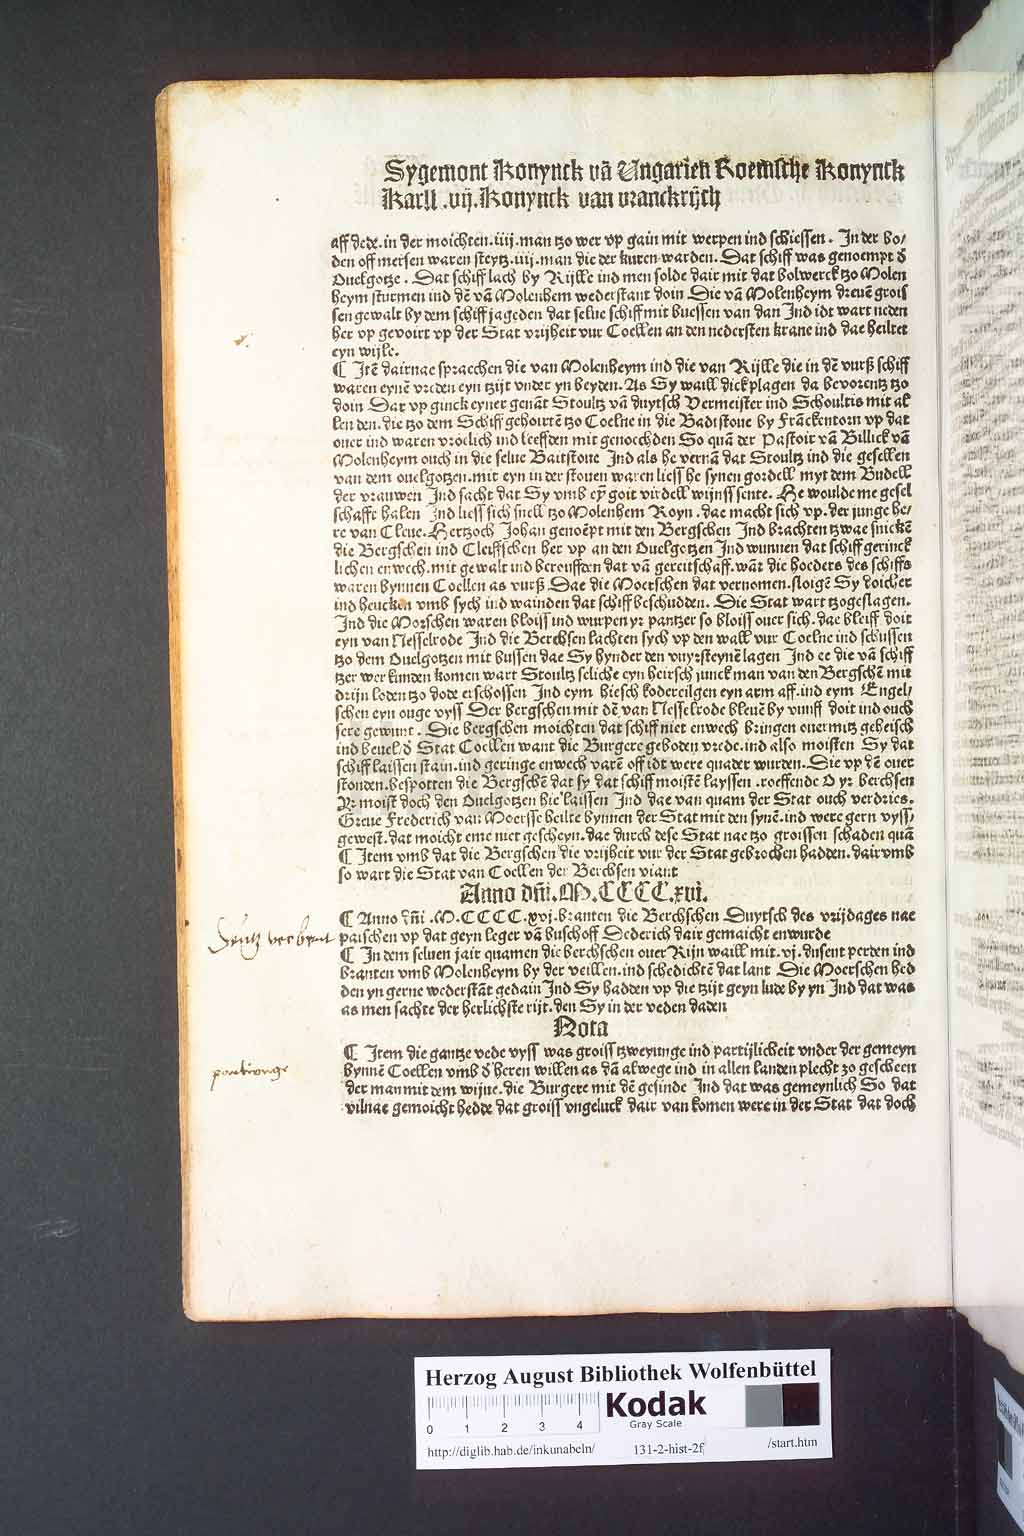 Sygemont Konynck vā Ungarien Roemsche Konynck
Karll .vij. Konynck van vranckrijch
aff dede. in der moichten .iiij. man tzo wer vp gain mit werpen ind schiessen. In der bo/
den off mersen waren steytz .iiij. man die der kuren warden. Dat schiff was genoempt d
Ouelgotze. Dat schiff lach by Rijlle ind men solde dair mit dat bolwerck tzo Molen
heym sturmen ind dē vā Molenhem wederstant doin Die vā Molenheym dreuē grois
sen gewalt by dem schiff ja geden dat selue schiff mit buessen van dan Ind idt wart neden
her vp gevoirt vp der Stat vrijheit vur Coellen an den nedersten krane ind dae heiltet
eyn wijle.
¶ Itē dairnae spraechen die van Molenheym ind die van Rijlle die in dē vurß schiff
waren eynē vreden eyn tzijt vnder yn beyden. As Sy waill dick plagen da bevorentz tzo
doin Dar vp ginck eyner genāt Stoultz vā duytsch Vermeister ind Schoultis mit al
len den. die tzo dem Schiff gehoirtē tzo Coelne in die Badistoue by Frāckentorn vp dat
ouer ind waren vroelich ind leeffden mit genoechden So quā der Pastoir vā Billick vā
Molenheym ouch in die selue Baitstoue Ind als he vernā dat Stoultz ind die gesellen
van dem ouelgotzen. mit eyn in der stouen waren liess he synen gordell myt dem Budell
der vrauwen Ind sacht dat Sy vmb eȳ goit virdell wijnss sente. He woulde me gesel
schafft halen Ind liess sich snell tzo Molenhem Royn. dae macht sich vp. der junge he/
re van Cleue. Hertzoch Johan genoēpt mit den Bergschen Ind brachten tzwae snickē
die Bergschen ind Cleiffschen her vp an den Ouelgotzen Ind wunnen dat schiff gerinck
lichen enwech. mit gewalt ind berouffden dat vā gereitschaff. wāt die hoeders des schiffs
waren bynnen Coellen as vurß Dae die Moerschen dat vernomen. sloigē Sy doicher
ind heucken vmb sych ind wainden dat schiff beschudden. Die Stat wart tzogeslagen.
Ind die Morschen waren bloiss ind wurpen yr pantzer so bloiss ouer sich. dae bleiff doit
eyn van Nesselrode Ind die Berchsen lachten sych vp den wall vur Coelne ind schussen
tzo dem Ouelgotzen mit bussen dae Sy hynder den vuyrsteynē lagen Ind ee die vā schiff
tzer wer kunden komen wart Stoultz seliche eyn heirsch junckman van den Bergschē mit
drijn loden tzo dode erschossen Ind eym hiesch kodereilgen eyn arm aff. ind eym Engel/
schen eyn ouge vyss Der bergschen mit dē van Nesselrode bleuē by vunff doit ind ouch
sere gewunt. Die bergschen moichten dat schiff niet enwech bringen ouermitz geheisch
ind beuel. d Stat Coellen want die Burgere geboden vrede. ind also moisten Sy dat
schiff laissen stain. ind geringe enwech varē off idt were quader wurden. Die vp dē ouer
stonden. bespotten die Bergschē dat sy dat schiff moistē layssen. roeffende O yr berchsen
Yr moist doch den Ouelgotzen hie laissen Ind dae van quam der Stat ouch verdries.
Greue Frederich van Moersse heilte bynnen der Stat mit den synē. ind were gern vyss/
gewest. dat moicht eme niet gescheyn. dae durch dese Stat nae tzo groissen schaden quā
¶ Item vmb dat die Bergschen die vrijheit vur der Stat gebrochen hadden. dair vmb
so wart die Stat van Coellen der Berchsen viant
Anno dn̄i. M. CCCC. xvi.
¶ Anno dn̄i .M. CCCC. xvj. branten die Berchschen Duytsch des vrijdages nae
paischen vp dat geyn leger vā buschoff Dederich dair gemaicht enwurde
Deutz verbrent
¶ In dem seluen jair quamen die berchschen ouer Rijn waill mit .vj. dusent perden ind
branten vmb Molenheym by der veillen. ind schedichtē dat lant Die Moerschen hed
den yn gerne wederstāt gedain Ind Sy hadden vp die tzijt geyn lude by yn Ind dat was
as men sachte der herlichste rijt. den Sy in der veden daden
Nota
¶ Item die gantze vede vyss was groiss tzweyunge ind partijlicheit vnder der gemeyn
bynnē Coellen vmb d heren willen as dā alwege ind in allen landen plecht zo gescheen
der man mit dem wijue. die Burgere mit dē gesinde Ind dat was gemeynlich So dat
vilnae gemoicht hedde dat groiss vngeluck dair van komen were in der Stat dat doch
Herzog August Bibliothek Wolfenbüttel
0 1 2 3 4
Kodak
Gray Scale
http://diglib.hab.de/inkunabeln/ 131-2-hist-2f /start.htm